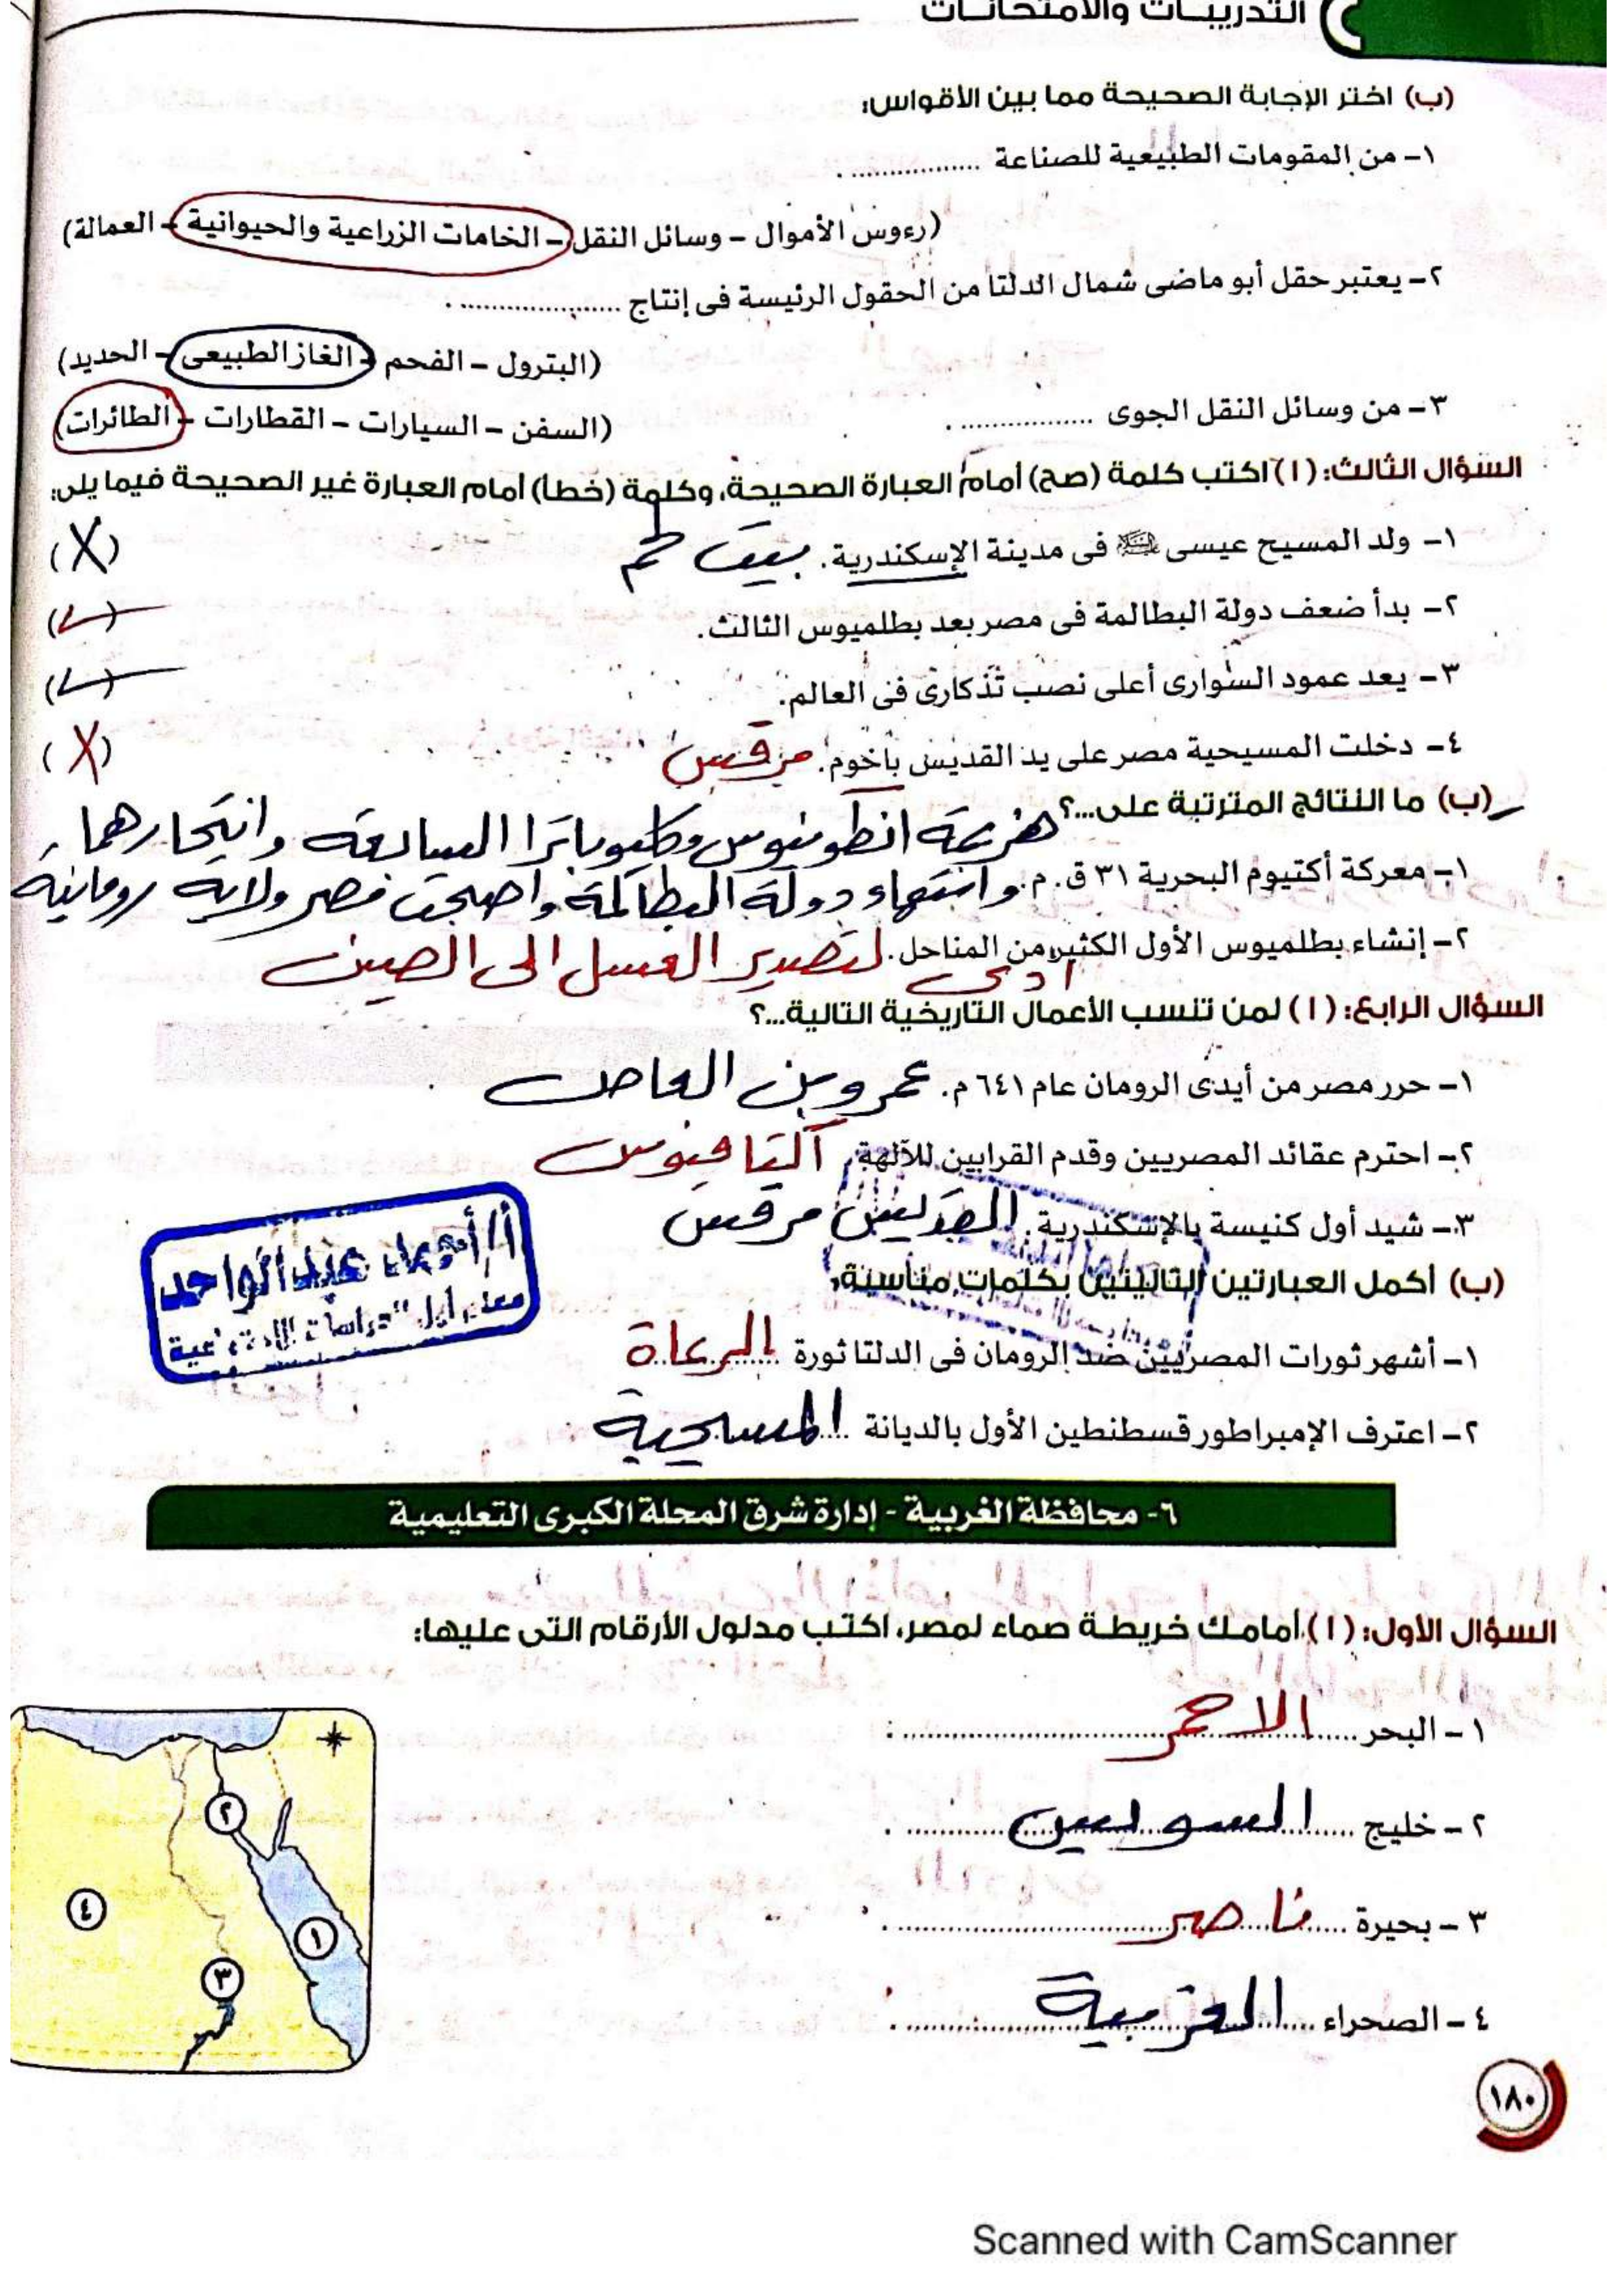 التدريبات والامتحانات
(ب) اختر الإجابة الصحيحة مما بين الأقواس:
١- من المقومات الطبيعية للصناعة .................
(رءوس الأموال - وسائل النقل - الخامات الزراعية والحيوانية - العمالة)
٢- يعتبر حقل أبو ماضى شمال الدلتا من الحقول الرئيسة فى إنتاج .....................
(البترول - الفحم - الغاز الطبيعى - الحديد)
٣- من وسائل النقل الجوى .................
(السفن - السيارات - القطارات - الطائرات)
السؤال الثالث: (ا) اكتب كلمة (صح) أمام العبارة الصحيحة، وكلمة (خطأ) أمام العبارة غير الصحيحة فيما يلى:
١- ولد المسيح عيسى عليه السلام فى مدينة الإسكندرية. بيت لحم (X)
٢- بدأ ضعف دولة البطالمة فى مصر بعد بطلميوس الثالث. (✓)
٣- يعد عمود السوارى أعلى نصب تذكارى فى العالم. (✓)
٤- دخلت المسيحية مصر على يد القديس باخوم. مرقس (X)
(ب) ما النتائج المترتبة على...؟ هزيمة انطونيوس وكليوباترا السابعة وانتحارهما
١- معركة أكتيوم البحرية ٣١ ق.م. وانتهاء دولة البطالمة واصبحت مصر ولاية رومانية
٢- إنشاء بطلميوس الأول الكثير من المناحل. ادى لتصدير العسل الى الصين
السؤال الرابع: (ا) لمن تنسب الأعمال التاريخية التالية...؟
١- حرر مصر من أيدى الرومان عام ٦٤١ م. عمرو بن العاص
٢- احترم عقائد المصريين وقدم القرابين للآلهة.
٣- شيد أول كنيسة بالإسكندرية. القديس مرقس
(ب) أكمل العبارتين التاليتين بكلمات مناسبة:
أ/ أحمد عبد الواحد
معلم أول "دراسات اجتماعية"
١- أشهر ثورات المصريين ضد الرومان فى الدلتا ثورة الرعاة
٢- اعترف الإمبراطور قسطنطين الأول بالديانة المسيحية
٦- محافظة الغربية - إدارة شرق المحلة الكبرى التعليمية
السؤال الأول: (ا) أمامك خريطة صماء لمصر، اكتب مدلول الأرقام التى عليها:
١- البحر الاحمر
٢- خليج السويس
٣- بحيرة ناصر
٤- الصحراء الغربية
٢
٤
١
٣
١٨٠
Scanned with CamScanner